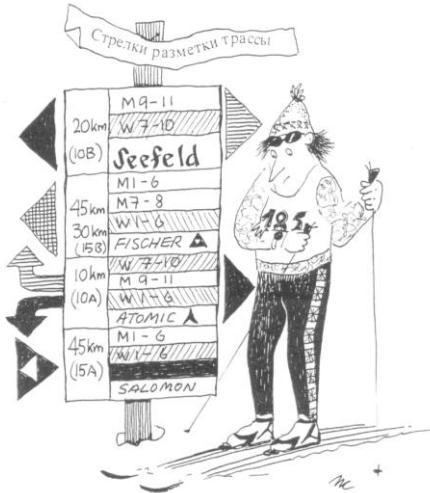 Стрелки разметки трассы
20km
(10B)
M9-11
W7-10
Seefeld
45km
30km
(15B)
M1-6
M7-8
W1-6
FISCHER
10km
(10A)
W7-10
M9-11
W1-6
ATOMIC
45km
(15A)
M1-6
W1-6
SALOMON